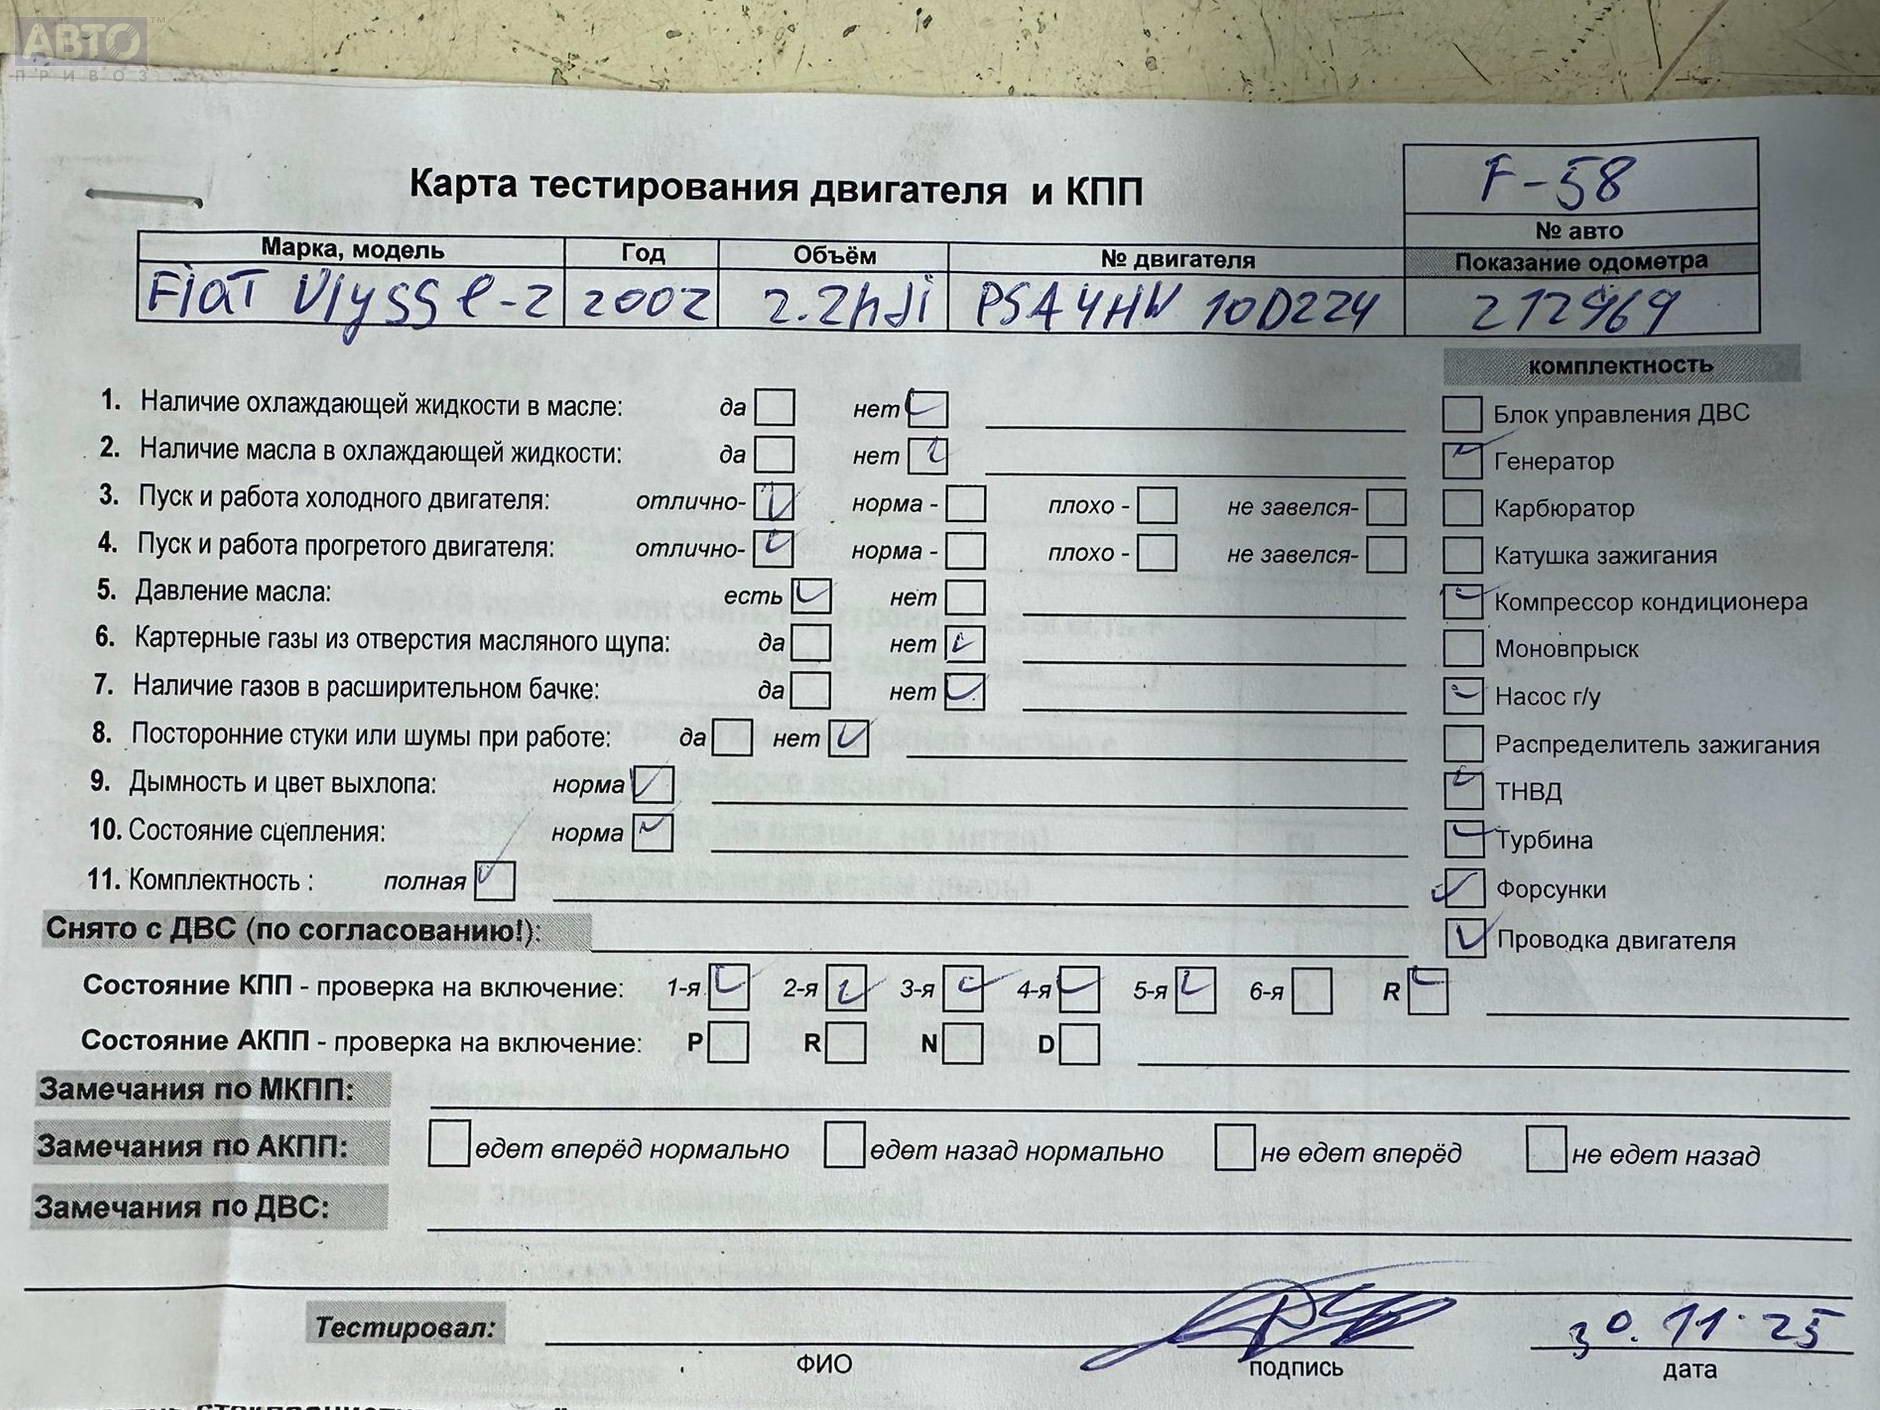 АВТО
ПРИВОЗ
Карта тестирования двигателя и КПП
F-58
№ авто
Марка, модель Год Объём № двигателя Показание одометра
Fiat Ulysse-2 2002 2.2hdi PSA4HW 10D224 212969
комплектность
1. Наличие охлаждающей жидкости в масле: да нет
Блок управления ДВС
2. Наличие масла в охлаждающей жидкости: да нет
Генератор
3. Пуск и работа холодного двигателя: отлично- норма - плохо - не завелся-
Карбюратор
4. Пуск и работа прогретого двигателя: отлично- норма - плохо - не завелся-
Катушка зажигания
5. Давление масла: есть нет
Компрессор кондиционера
6. Картерные газы из отверстия масляного щупа: да нет
Моновпрыск
7. Наличие газов в расширительном бачке: да нет
Насос г/у
8. Посторонние стуки или шумы при работе: да нет
Распределитель зажигания
9. Дымность и цвет выхлопа: норма
ТНВД
10. Состояние сцепления: норма
Турбина
11. Комплектность : полная
Форсунки
Снято с ДВС (по согласованию!):
Проводка двигателя
Состояние КПП - проверка на включение: 1-я 2-я 3-я 4-я 5-я 6-я R
Состояние АКПП - проверка на включение: P R N D
Замечания по МКПП:
Замечания по АКПП: едет вперёд нормально едет назад нормально не едет вперёд не едет назад
Замечания по ДВС:
Тестировал:
30.11.25
ФИО подпись дата